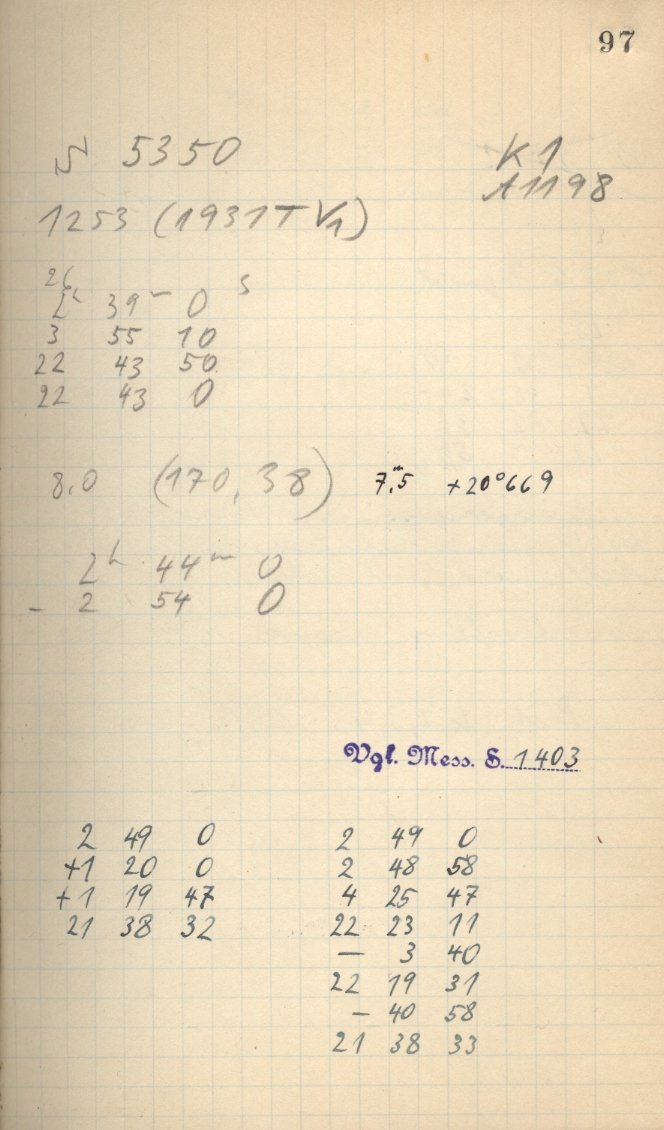 97
N 5350 K 1
A1198
1253 (1931 T V1)
26
2h 39m 0s
3 55 10
22 43 50
22 43 0
8,0 (170, 38) 7,m5 +20°669
2h 44m 0
- 2 54 0
Vgl. Mess. S. 1403
2 49 0
+1 20 0
+1 19 47
21 38 32
2 49 0
2 48 58
4 25 47
22 23 11
— 3 40
22 19 31
— 40 58
21 38 33